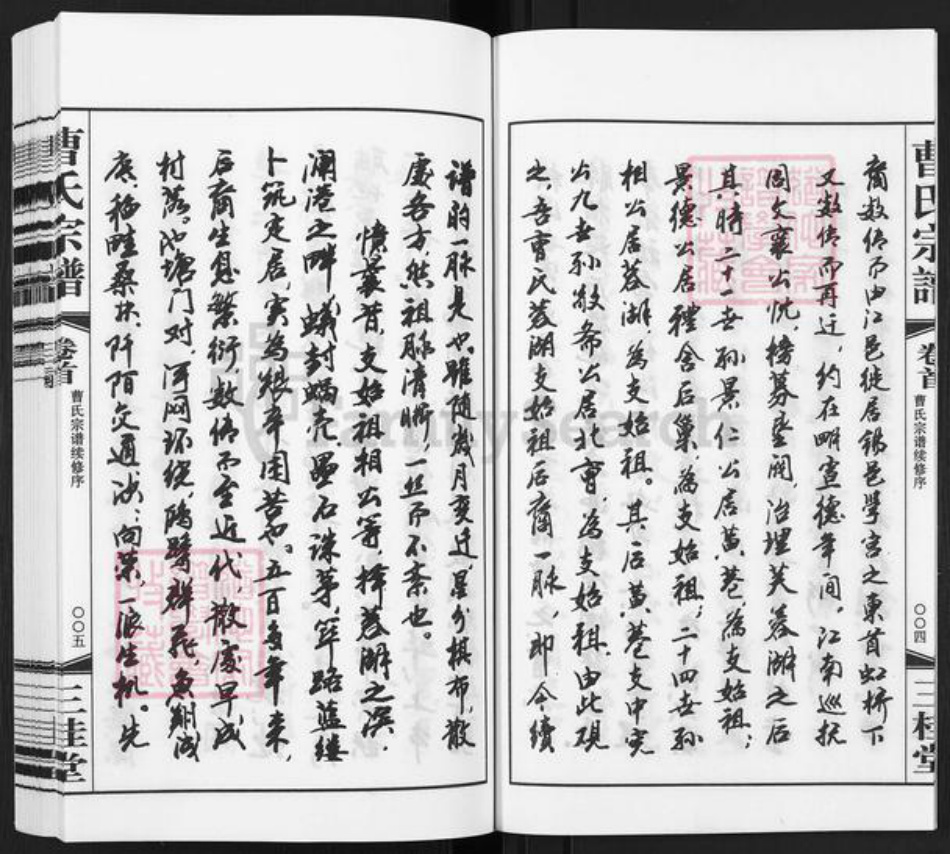 曹氏宗譜
卷首
曹氏宗谱续修序
〇〇四
三桂堂
裔数传而由江邑徙居锡邑学宫之东首虹桥下
又数传而再迁，约在明宣德年间。江南巡抚
周文襄公忱，榜募垦阔治理芙蓉湖之后
其时二十一世孙景仁公居黄巷，为支始祖；
景德公居礼舍后巢，为支始祖；二十四世孙
相公居蓉湖，为支始祖。其后黄巷支中完
公九世孙敬斋公居北曹，为支始祖。由此观
之，吾曹氏蓉湖支始祖后裔一脉，即今续
谱的一脉是也。虽随岁月变迁，星分棋布，散
处各方，然祖脉清晰，一丝而不紊也。
忆曩昔，支始祖相公等，择蓉湖之滨，
澜港之畔，蚁封蜗壳，叠石诛茅，筚路蓝缕
卜筑定居，实为艰辛困苦也。五百多年来，
后裔生息繁衍，数传而至近代，散处早成
村落。池塘门对，河网环绕，鸥鹭群飞，鱼翔浅
底，稻畦桑块，阡陌交通，欣欣向荣，一派生机。先
曹氏宗譜
卷首
曹氏宗谱续修序
〇〇五
三桂堂
FamilySearch